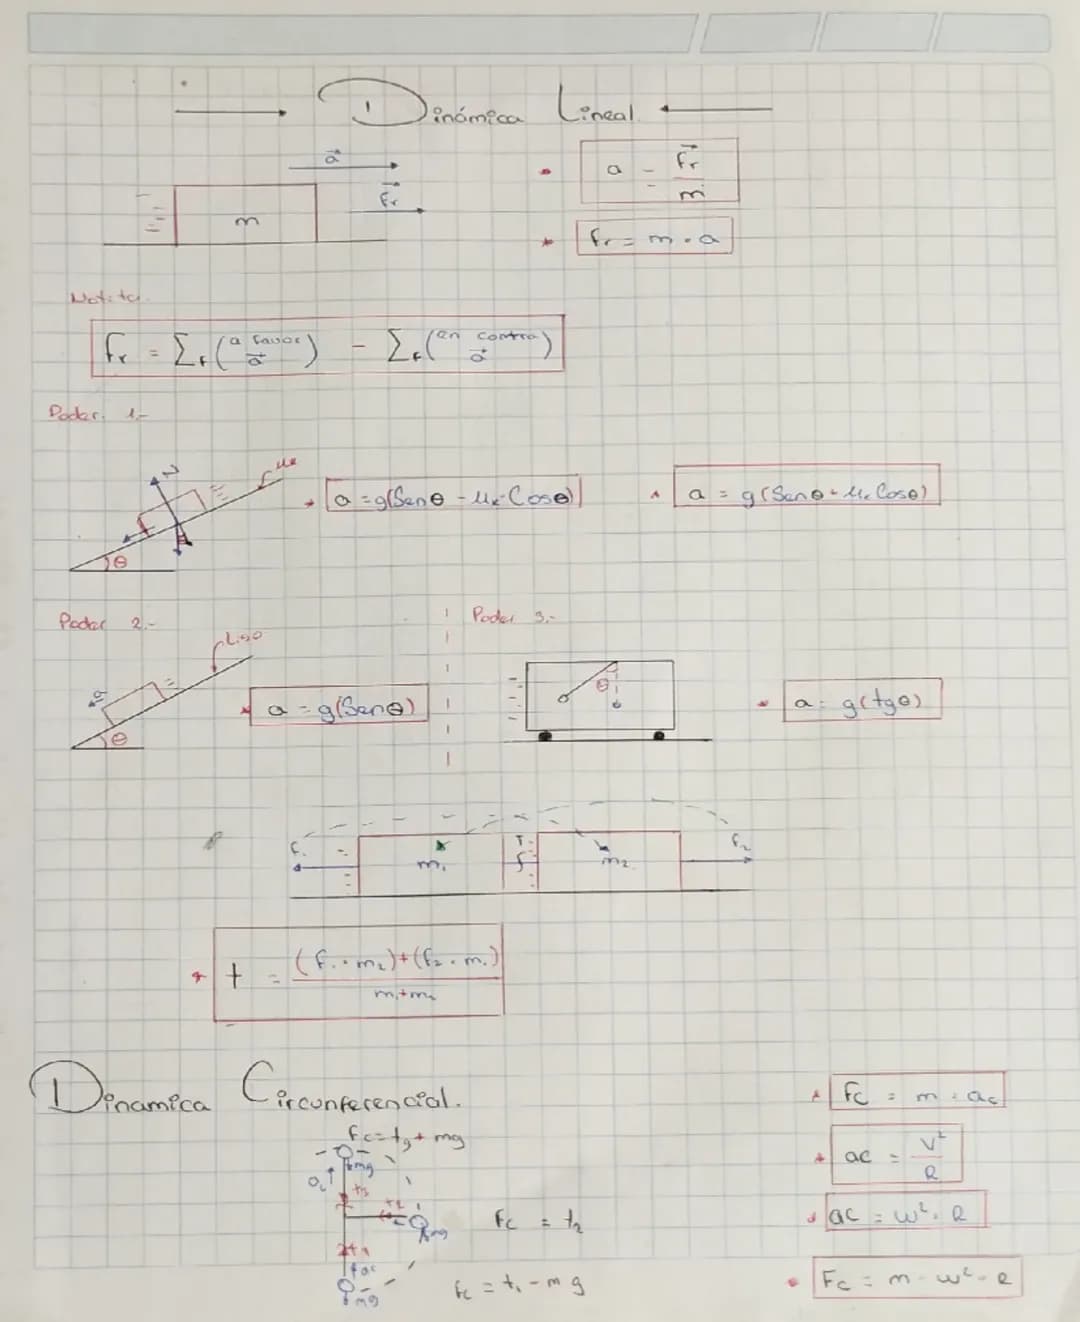 Dinámica Lineal
a⃗
F⃗r
m
a = F⃗r / m
Fr = m . a
Notita.
Fr = ΣF (a favor a⃗) - ΣF (en contra a⃗)
Poder. 1.-
N
μk
θ
a = g(Senθ - μk·Cosθ)
a = g(Senθ + μk Cosθ)
Poder 2.-
Liso
a
θ
a = g(Senθ)
Poder 3.-
θ
a = g(tgθ)
F1
m1
T
m2
F2
t = (F1 . m2) + (F2 . m1) / m1 + m2
Dinamica Circunferencial.
Fc = t3 + mg
mg
ac
t3
t2
mg
Fc = t2
t1
ac
mg
Fc = t1 - mg
Fc = m . ac
ac = V² / R
ac = w² . R
Fc = m . w² . R